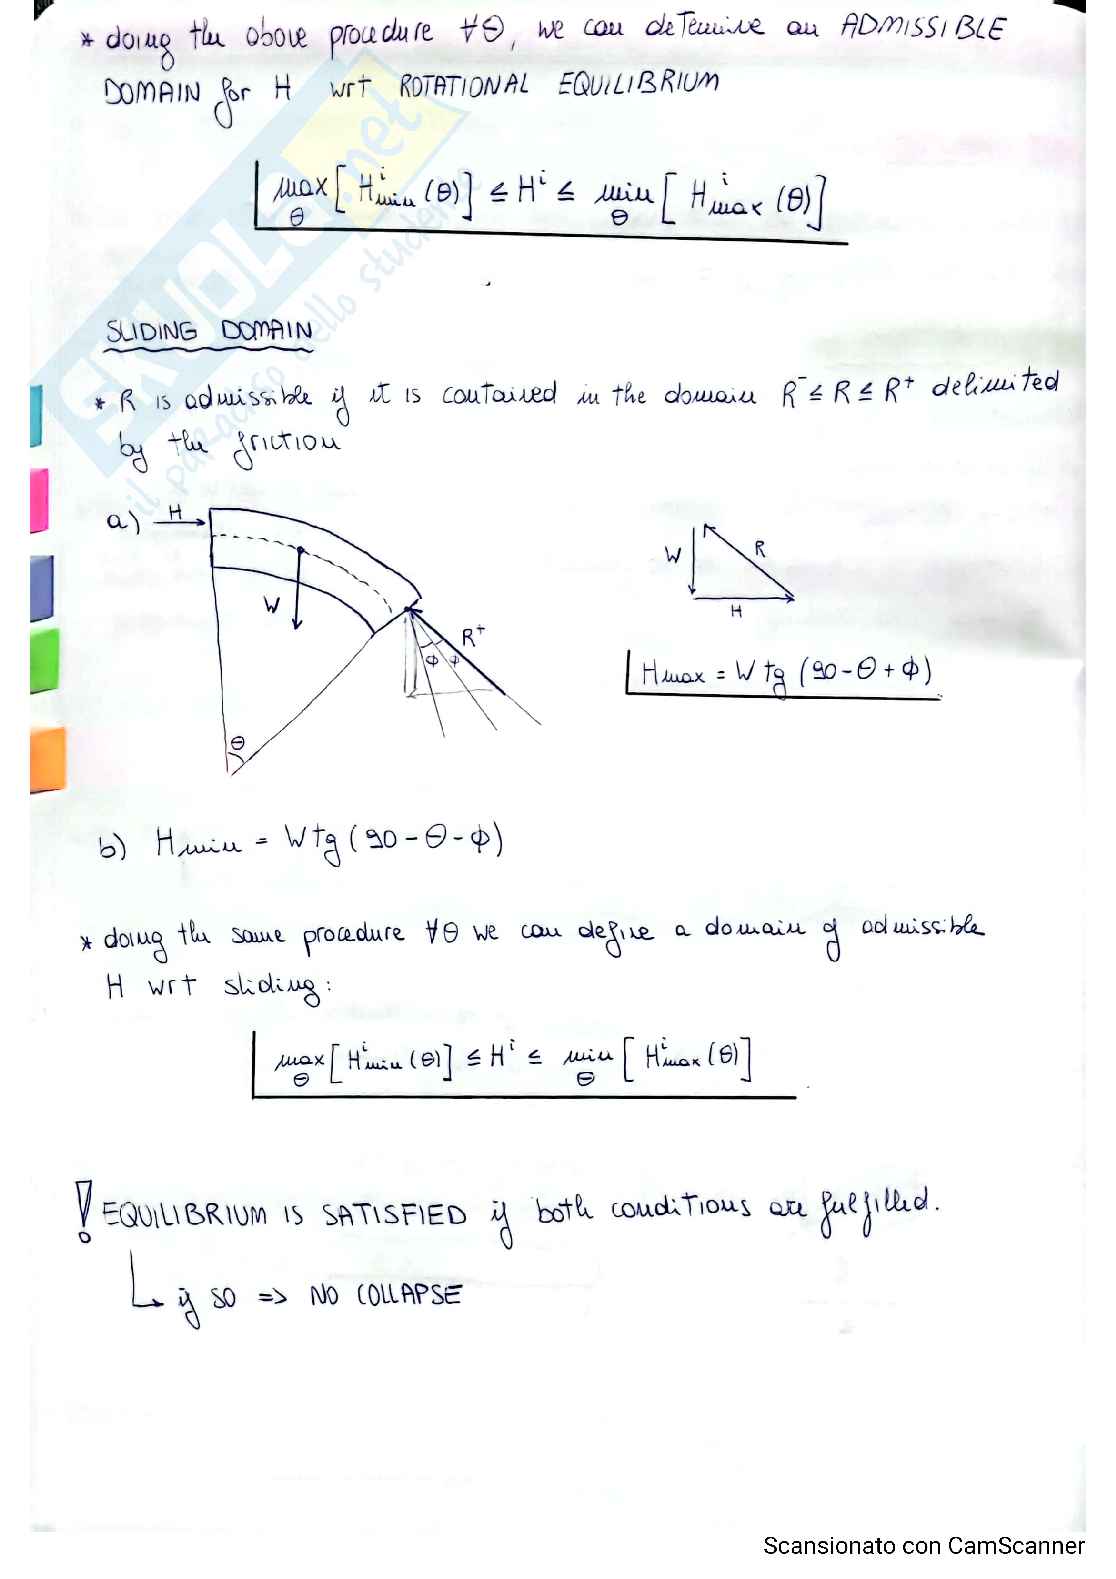 * doing the above procedure ∀θ, we can determine an ADMISSIBLE
DOMAIN for H wrt ROTATIONAL EQUILIBRIUM
max_θ [ H^i_min (θ)] ≤ H^i ≤ min_θ [ H^i_max (θ)]
SLIDING DOMAIN
* R is admissible if it is contained in the domain R⁻ ≤ R ≤ R⁺ delimited
by the friction
a) H
W
R⁺
φ φ
θ
W R
H
H_max = W tg (90 - θ + φ)
b) H_min = W tg (90 - θ - φ)
* doing the same procedure ∀θ we can define a domain of admissible
H wrt sliding:
max_θ [ H^i_min (θ)] ≤ H^i ≤ min_θ [ H^i_max (θ)]
! EQUILIBRIUM IS SATISFIED if both conditions are fulfilled.
↳ if so => NO COLLAPSE
SKUOLA.net
il paradiso dello studente
Scansionato con CamScanner